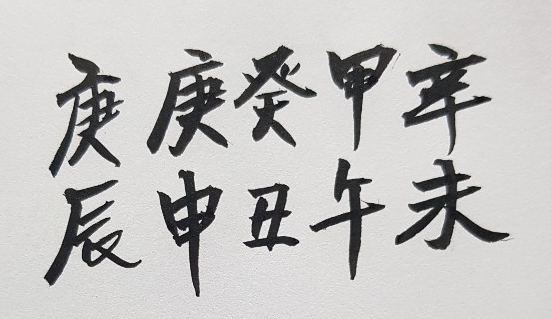 辛未
甲午
癸丑
庚申
庚辰